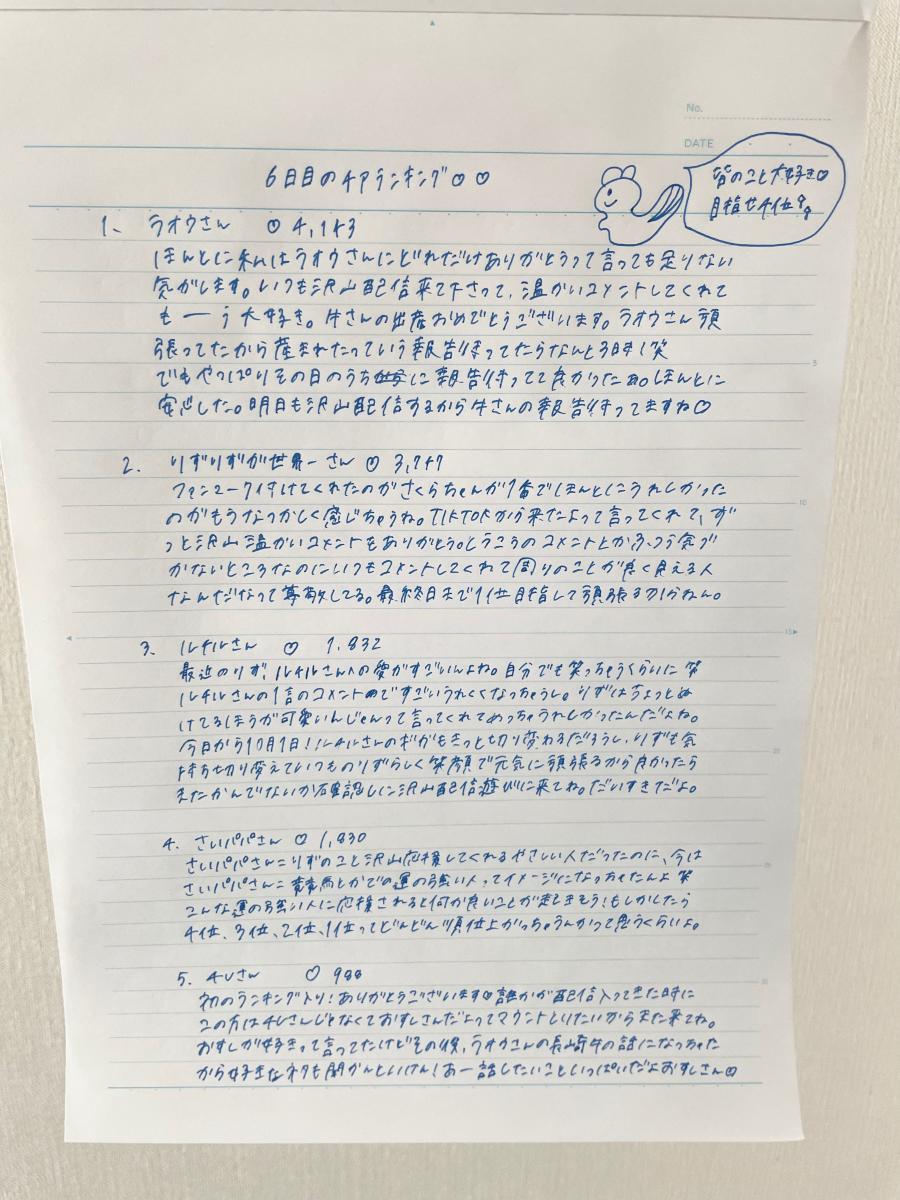 No.
DATE
6日目のチアランキング♡♡
皆のこと大好き♡
目指せ4位
1、 ラオウさん ♡ 4,143
ほんとに私はラオウさんにどれだけありがとうって言っても足りない
気がします。いつも沢山配信来て下さって、温かいコメントしてくれて
も一う大好き。牛さんの出産おめでとうございます。ラオウさん頑
張ってたから産まれたっていう報告待ってたらなんと3日时!笑
でもやっぱりその日のうちに報告待ってて良かったぁ。ほんとに
安心した。明日も沢山配信するから牛さんの報告待ってますね♡
2. りずりずが世界一さん ♡ 3,747
ファンマーク付けてくれたのがさくらちゃんが1番でほんとにうれしかった
のがもうなつかしく感じちゃうね。TIKTOKから来たよって言ってくれて、ず
っと沢山温かいコメントをありがとう。とうろうのコメントとかふつう気づ
かないところなのにいつもコメントしてくれて周りのことが良く見える人
なんだなって尊敬してる。最終日まで1位目指して頑張るかんね。
3. ルチルさん ♡ 1,832
最近のりず、ルチルさんへの愛がすごいんよね。自分でも笑っちゃうくらいに笑
ルチルさんの1言のコメントですごいうれしくなっちゃうし。りずはちょっとぬ
けてるほうが可愛いんじゃんって言ってくれてめっちゃうれしかったんだよね。
今日から10月1日!ルチルさんのギガもきっと切り変わるだろうし、りずも気
持ち切り変えていつものりずらしく笑顔で元気に頑張るから良かったら
またかんでないか確認しに沢山配信遊びに来てね。だいすきだよ。
4. さいパパさん ♡ 1,830
さいパパさん=りずのこと沢山応援してくれるやさしい人だったのに、今は
さいパパさん=競馬とかでの運の強い人ってイメージになっちゃたんよ笑
こんな運の強い人に応援されると何か良いことが起きそう!もしかしたら
4位、3位、2位、1位ってどんどん順位上がっちゃうんかって思うくらいよ。
5. 4Uさん ♡ 988
初のランキング入り!ありがとうございます♡誰かが配信入ってきた時に
この方は4Uさんじゃなくておすしさんだよってマウントとりたいからまた来てね。
おすしが好きって言ってたけどその後、ラオウさんの長崎牛の話になっちゃた
から好きなネタも聞かんといけん!あー話したいこといっぱいだよおすしさん♡